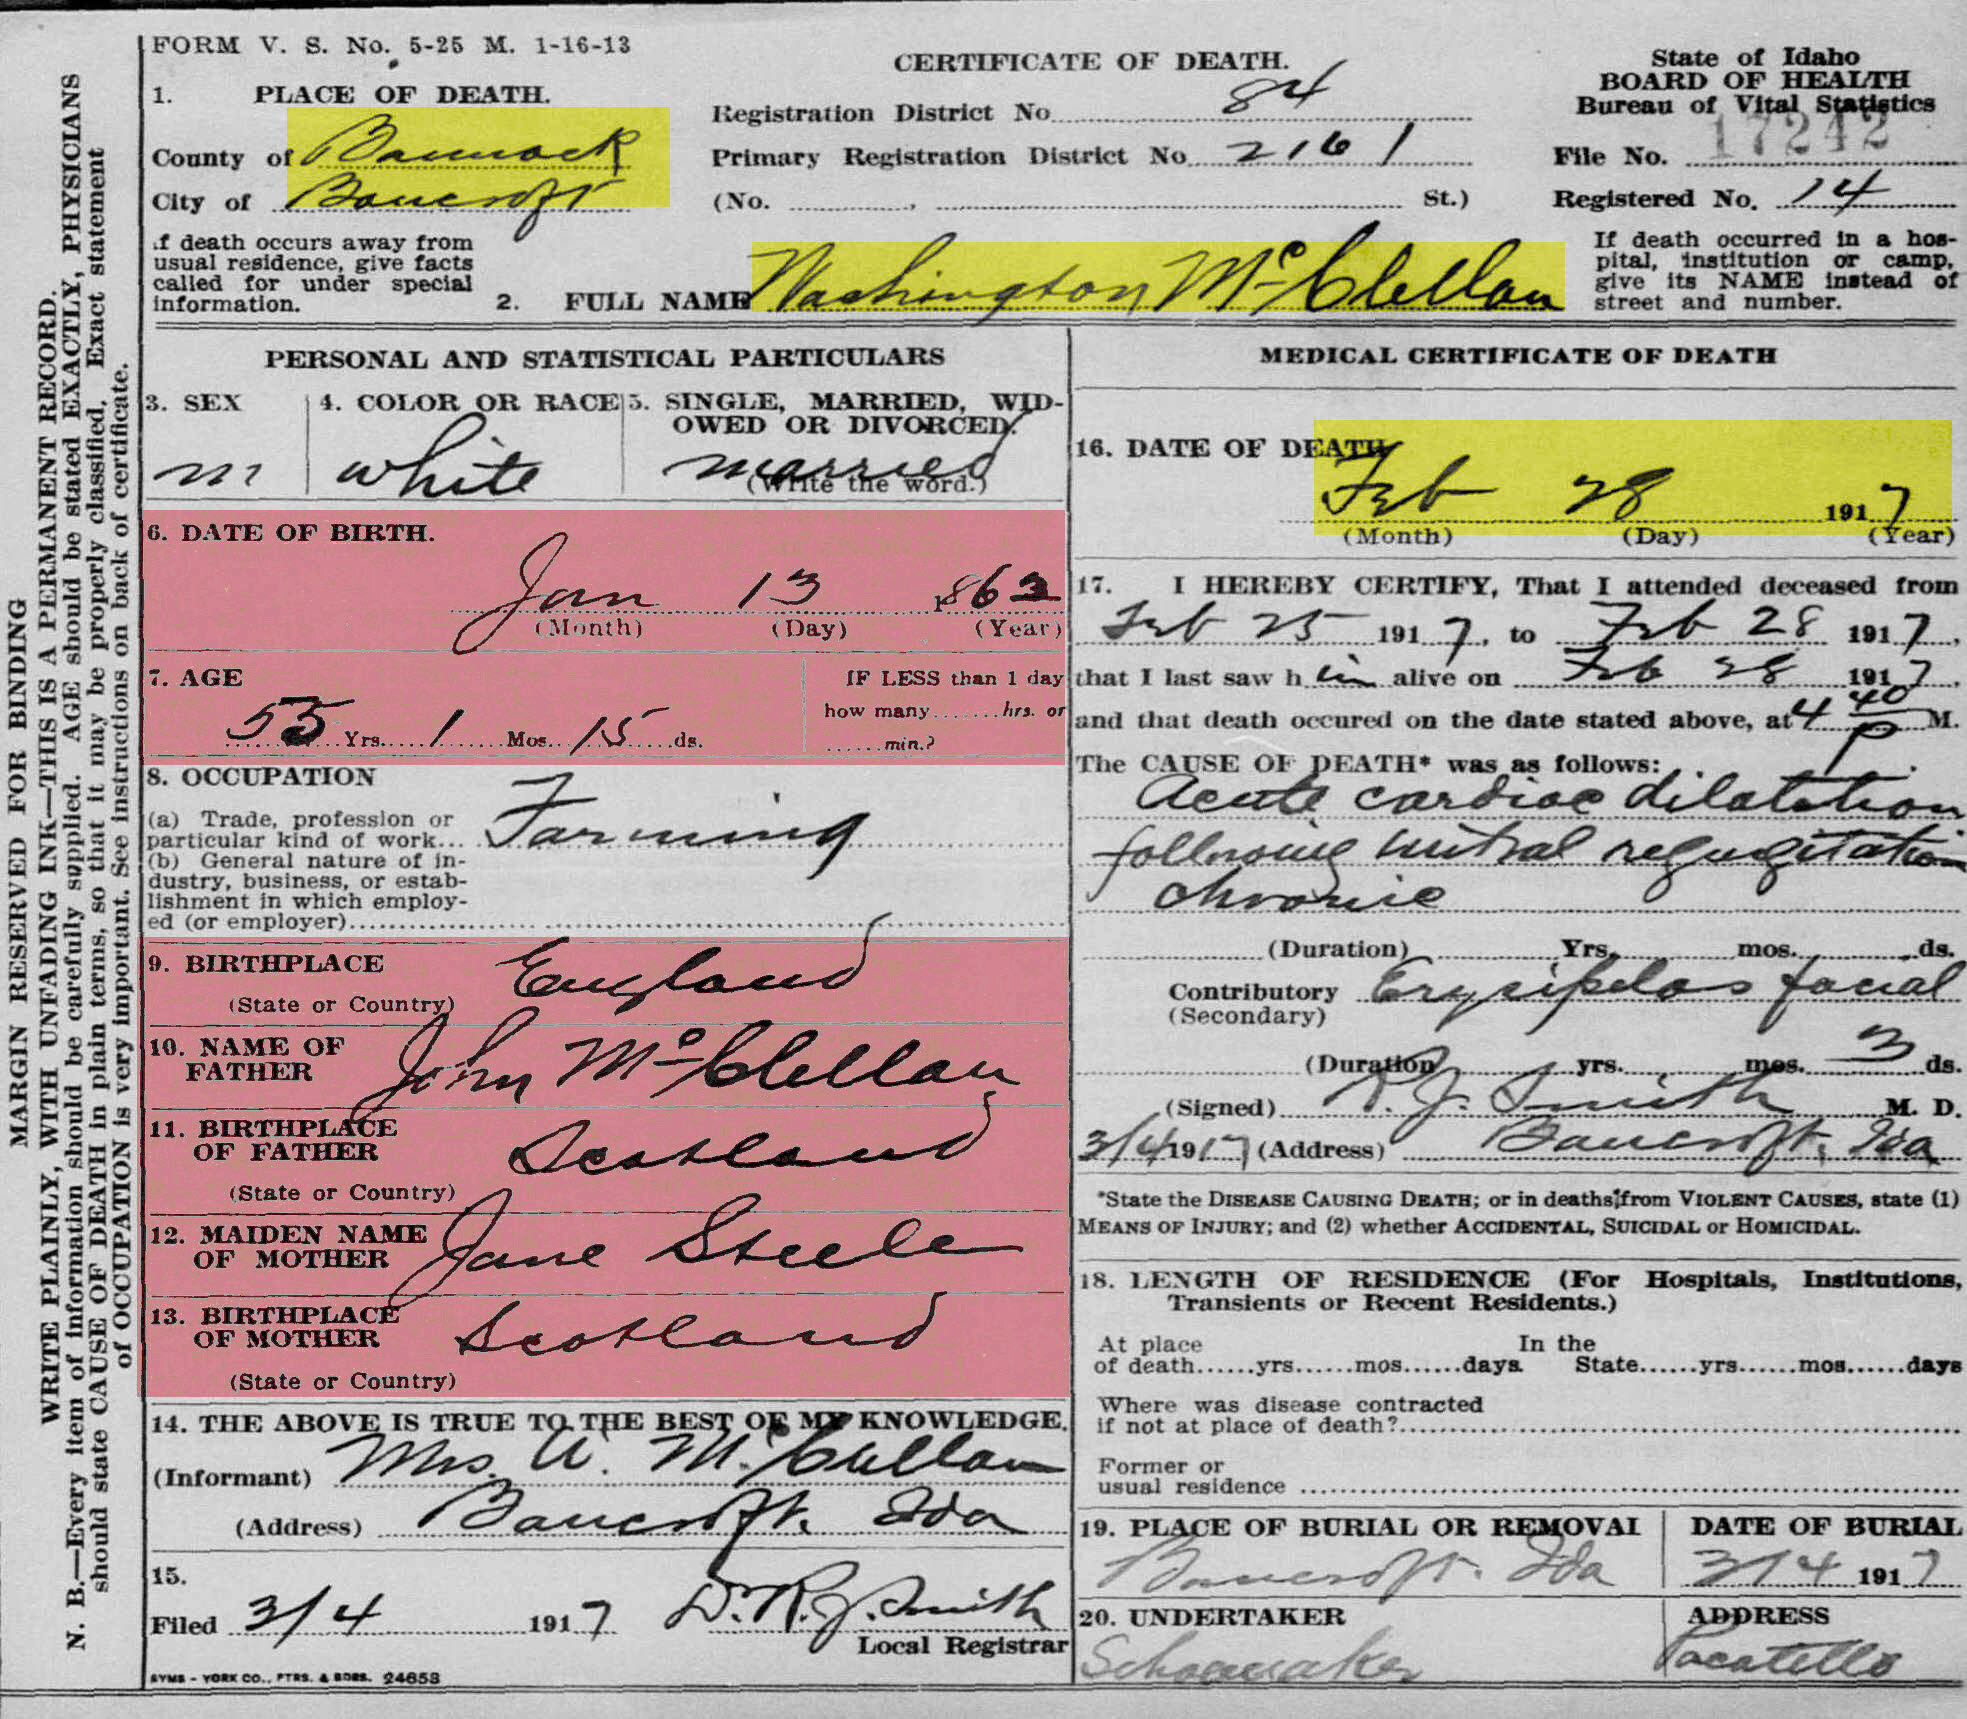 FORM V. S. No. 5-25 M. 1-16-13
CERTIFICATE OF DEATH.
State of Idaho
BOARD OF HEALTH
Bureau of Vital Statistics
1. PLACE OF DEATH.
County of Bannock
City of Bancroft
Registration District No. 84
Primary Registration District No. 2161
(No. St.)
File No. 17242
Registered No. 14
If death occurs away from
usual residence, give facts
called for under special
information.
2. FULL NAME Washington McClellan
If death occurred in a hos-
pital, institution or camp,
give its NAME instead of
street and number.
PERSONAL AND STATISTICAL PARTICULARS
3. SEX
m
4. COLOR OR RACE
white
5. SINGLE, MARRIED, WID-
OWED OR DIVORCED.
married
(Write the word.)
6. DATE OF BIRTH.
Jan 13 1862
(Month) (Day) (Year)
7. AGE
55 Yrs. 1 Mos. 15 ds.
IF LESS than 1 day
how many hrs. or
min.?
8. OCCUPATION
(a) Trade, profession or
particular kind of work... Farming
(b) General nature of in-
dustry, business, or estab-
lishment in which employ-
ed (or employer)
9. BIRTHPLACE England
(State or Country)
10. NAME OF
FATHER John McClellan
11. BIRTHPLACE
OF FATHER Scotland
(State or Country)
12. MAIDEN NAME
OF MOTHER Jane Steele
13. BIRTHPLACE
OF MOTHER Scotland
(State or Country)
14. THE ABOVE IS TRUE TO THE BEST OF MY KNOWLEDGE.
(Informant) Mrs. W. McClellan
(Address) Bancroft. Ida
15.
Filed 3/4 1917 Dr. R. J. Smith
Local Registrar
SYMS - YORK CO., PTRS. & BDRS. 24653
MEDICAL CERTIFICATE OF DEATH
16. DATE OF DEATH
Feb 28 1917
(Month) (Day) (Year)
17. I HEREBY CERTIFY, That I attended deceased from
Feb 25 1917, to Feb 28 1917,
that I last saw him alive on Feb 28 1917,
and that death occured on the date stated above, at 4 40 P M.
The CAUSE OF DEATH* was as follows:
Acute cardiac dilatation
following mitral regurgitation
chronic
(Duration) Yrs. mos. ds.
Contributory Erysipelas facial
(Secondary)
(Duration yrs. mos. 3 ds.
(Signed) R. J. Smith M. D.
3/4 1917 (Address) Bancroft, Ida
*State the DISEASE CAUSING DEATH; or in deaths from VIOLENT CAUSES, state (1)
MEANS OF INJURY; and (2) whether ACCIDENTAL, SUICIDAL or HOMICIDAL.
18. LENGTH OF RESIDENCE (For Hospitals, Institutions,
Transients or Recent Residents.)
At place In the
of death......yrs......mos......days State......yrs......mos......days
Where was disease contracted
if not at place of death?
Former or
usual residence
19. PLACE OF BURIAL OR REMOVAL
Bancroft. Ida
DATE OF BURIAL
3/4 1917
20. UNDERTAKER
Schoemaker
ADDRESS
Pocatello
MARGIN RESERVED FOR BINDING
WRITE PLAINLY, WITH UNFADING INK—THIS IS A PERMANENT RECORD.
N. B.—Every item of information should be carefully supplied. AGE should be stated EXACTLY, PHYSICIANS
should state CAUSE OF DEATH in plain terms, so that it may be properly classified. Exact statement
of OCCUPATION is very important. See instructions on back of certificate.